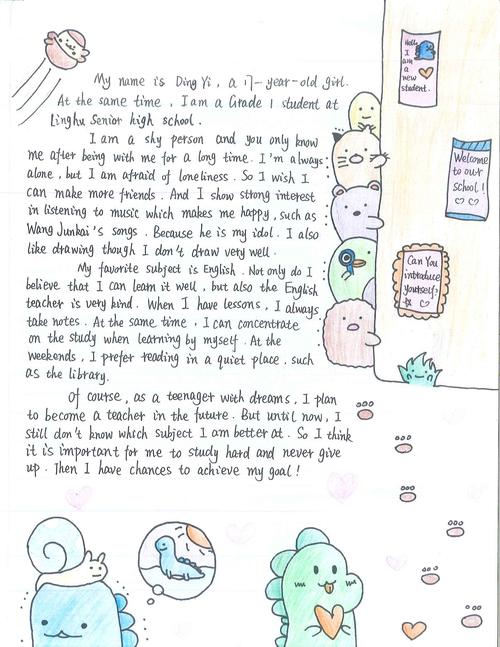 My name is Ding Yi, a 17-year-old girl.
At the same time, I am a Grade 1 student at
Linghu Senior high school.
I am a shy person and you only know
me after being with me for a long time. I'm always
alone, but I am afraid of loneliness. So I wish I
can make more friends. And I show strong interest
in listening to music which makes me happy, such as
Wang Junkai's songs. Because he is my idol. I also
like drawing though I don't draw very well.
My favorite subject is English. Not only do I
believe that I can learn it well, but also the English
teacher is very kind. When I have lessons, I always
take notes. At the same time, I can concentrate
on the study when learning by myself. At the
weekends, I prefer reading in a quiet place, such
as the library.
Of course, as a teenager with dreams, I plan
to become a teacher in the future. But until now, I
still don't know which subject I am better at. So I think
it is important for me to study hard and never give
up. Then I have chances to achieve my goal!
Hello
I
am
a
new
student.
Welcome
to our
school!
Can You
introduce
yourself?